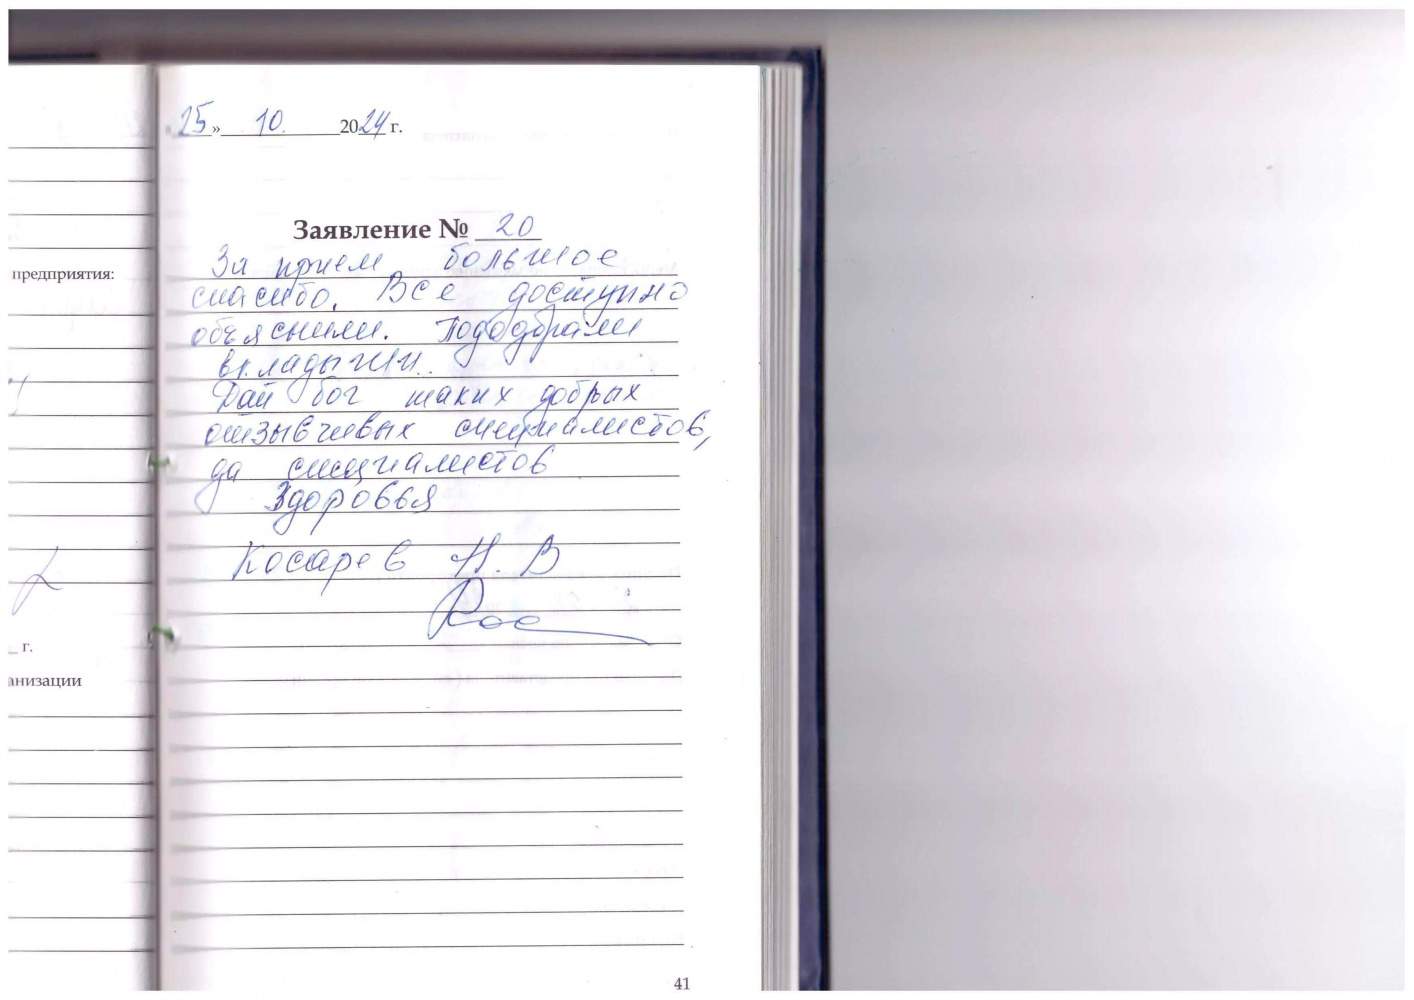 «25» 10. 2024 г.
Заявление № 20
За прием большое
спасибо. Все доступно
объяснили. Пододбрали
вкладыши.
Дай бог таких добрых
отзывчивых специалистов,
да специалистов
Здоровья
Косарев Н. В
Кос
предприятия:
г.
анизации
41